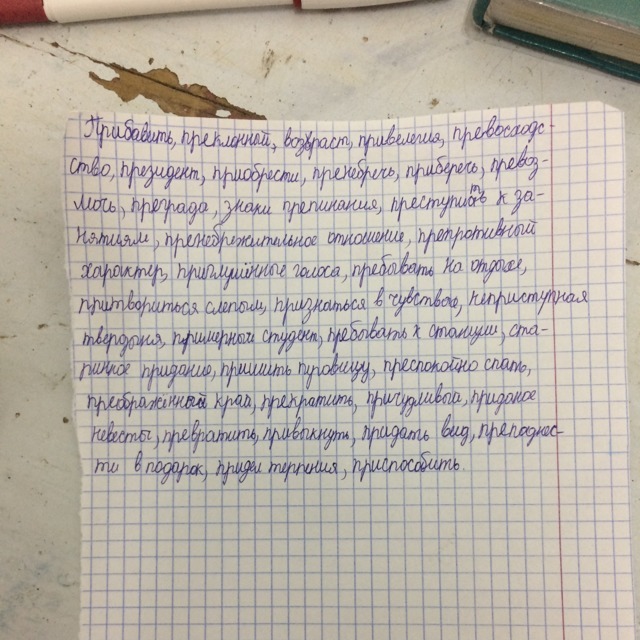 Прибавить, преклонный, возвраст, привелегия, превосходс-
ство, президент, приобрести, пренебречь, приберечь, превоз-
мочь, преграда, знаки препинания, преступить к за-
нятиям, пренебрежительное отношение, препротивный
характер, приглушённые голоса, пребывать на отдыхе,
притвориться слепым, признаться в чувствах, неприступная
твердыня, примерный студент, пребывать к станции, ста-
ринное придание, пришить пуговицу, преспокойно спать,
преображенный край, прекратить, причудливый, приданое
невесты, превратить, привыкнуть, придать вид, преподнес-
ти в подарок, придел терпения, приспособить.